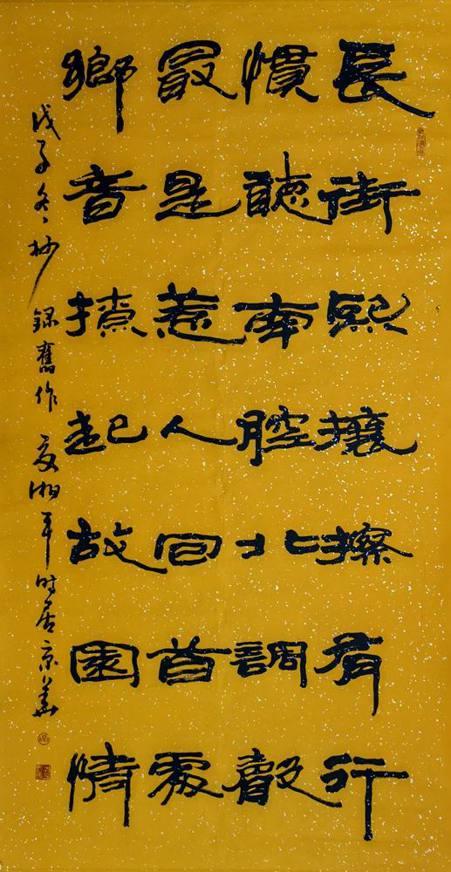 長街熙攘擦肩行
慣聽南腔北調聲
最是惹人回首處
鄉音撩起故園情
戊子冬杪錄舊作夏湘平時居京華